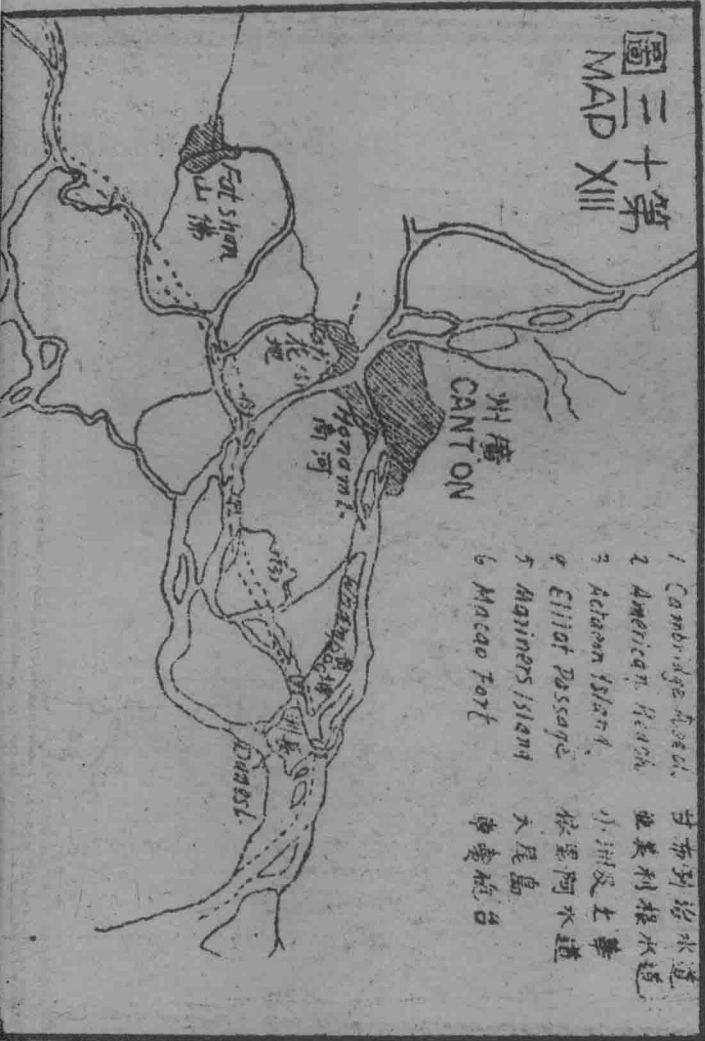 第十三圖
MAP XIII
廣州
CANTON
Fatshan
佛山
花地
Honam I.
河南
Whampoa
黃埔
長洲
Danes I.
1 Cambridge Reach 甘布列治水道
2 American Reach 亞美利根水道
3 Actaeon Island. 小洲及土華
4 Elliot Passage 依里阿水道
5 Mariners Island 大尾島
6 Macao Fort 炮台